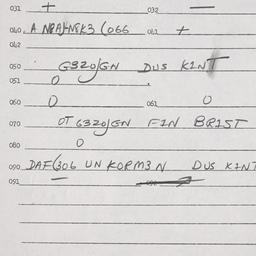 031 + 032 —
040. A NBA)-NGK3 (066 041 +
042
050 G3ZO/GN DUS KINT
051 O
060 O 061 O
070 OT G3ZO/GN FIN BRIST
080 O
090 DAF(306 UN KORM3N DUS KINT
091 —